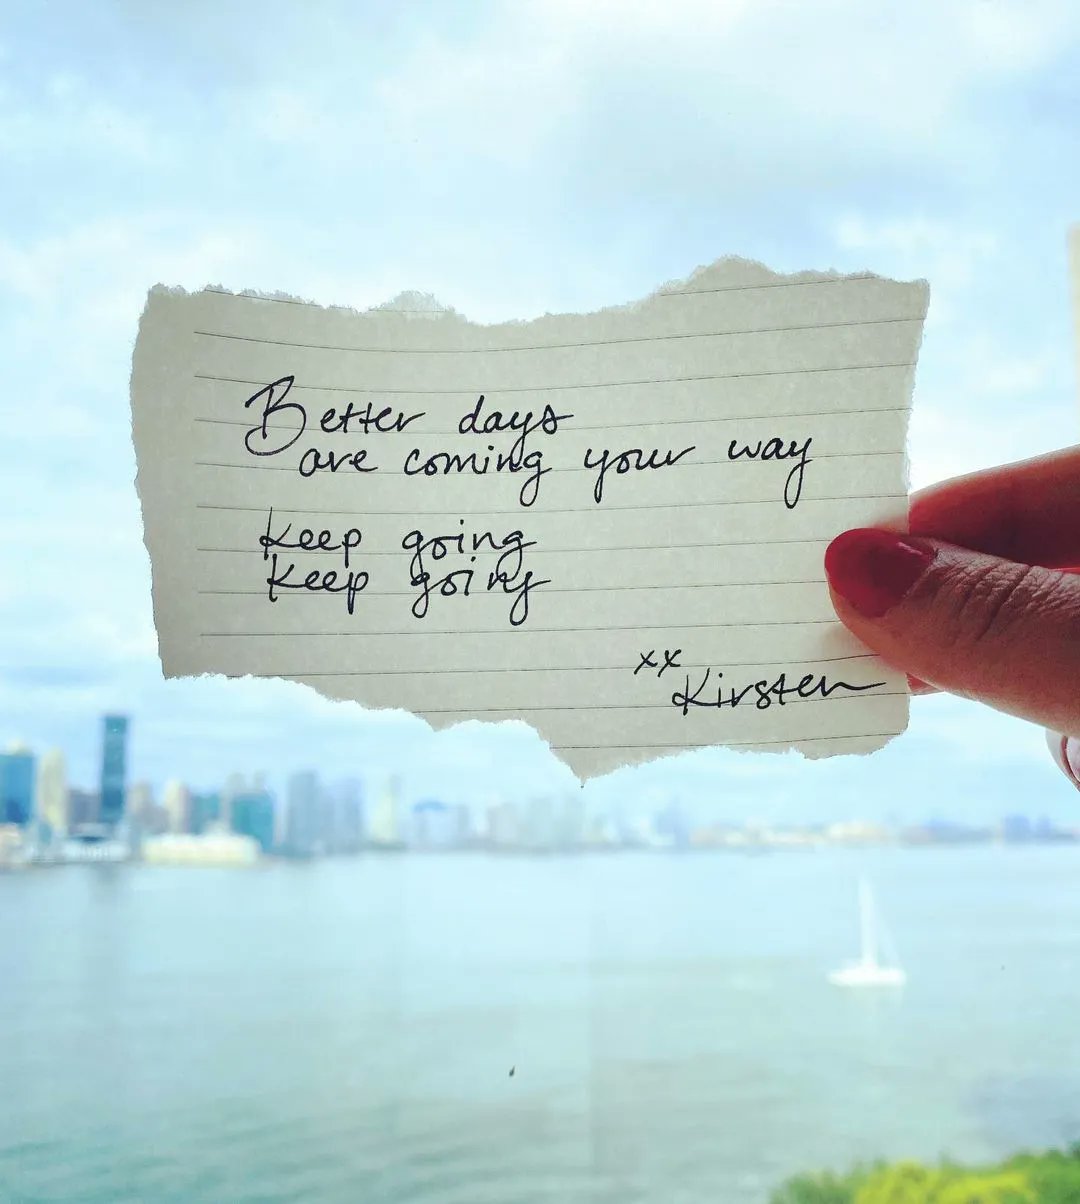 Better days
are coming your way
Keep going
Keep going
xx
Kirsten